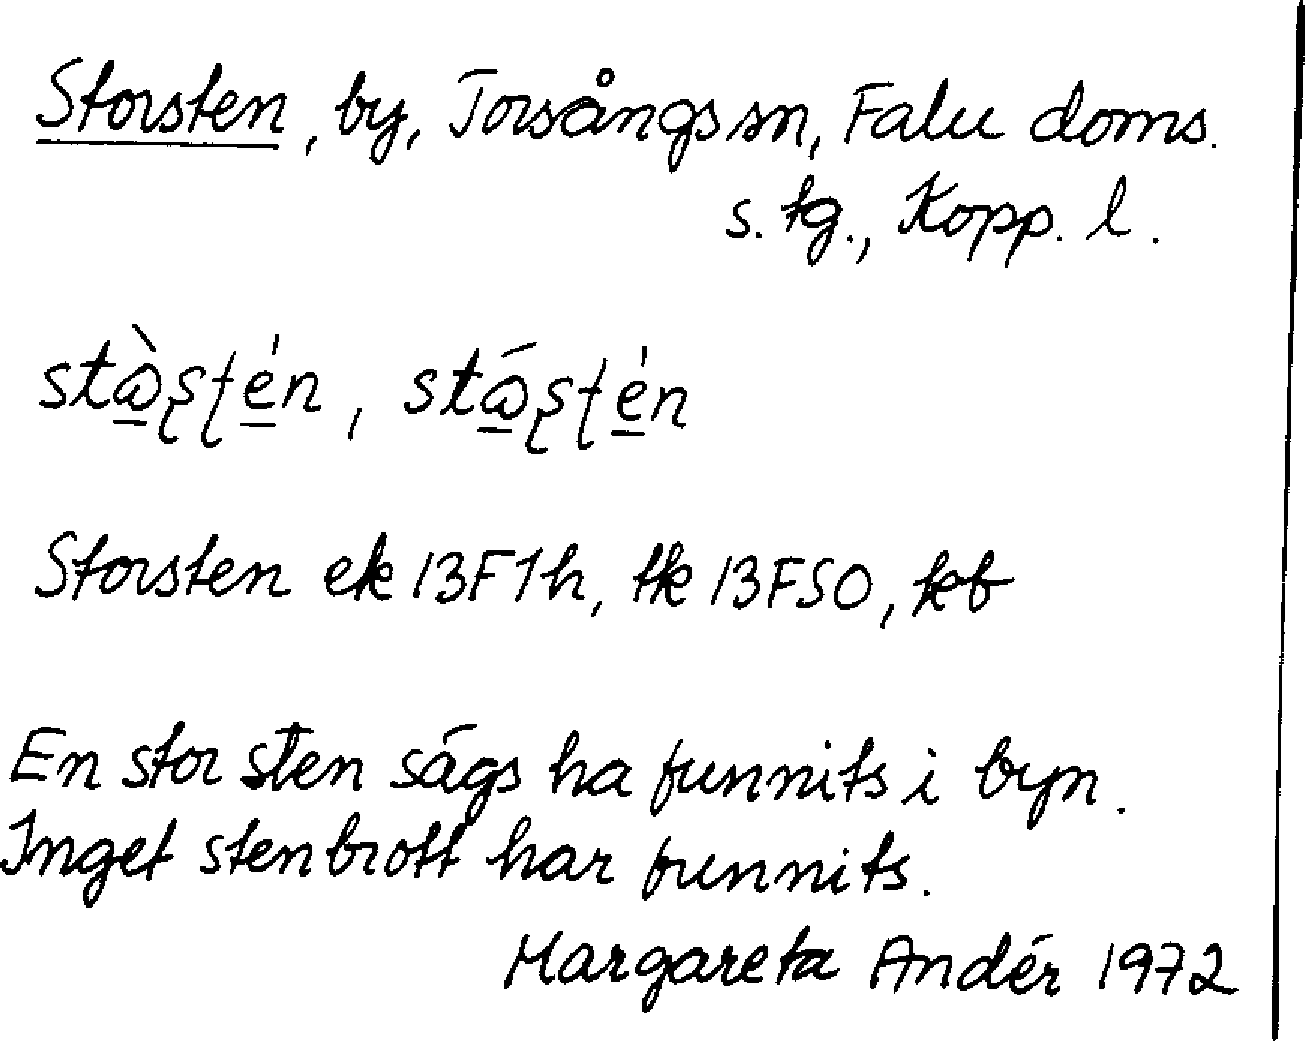 Storsten, by, Torsångs sn, Falu doms.
s. tg., Kopp. l.
stɷ̀ʂʈén, stɷ́ʂʈén
Storsten ek 13F1h, tk 13FSO, kb
En stor sten sägs ha funnits i byn.
Inget stenbrott har funnits.
Margareta Andér 1972